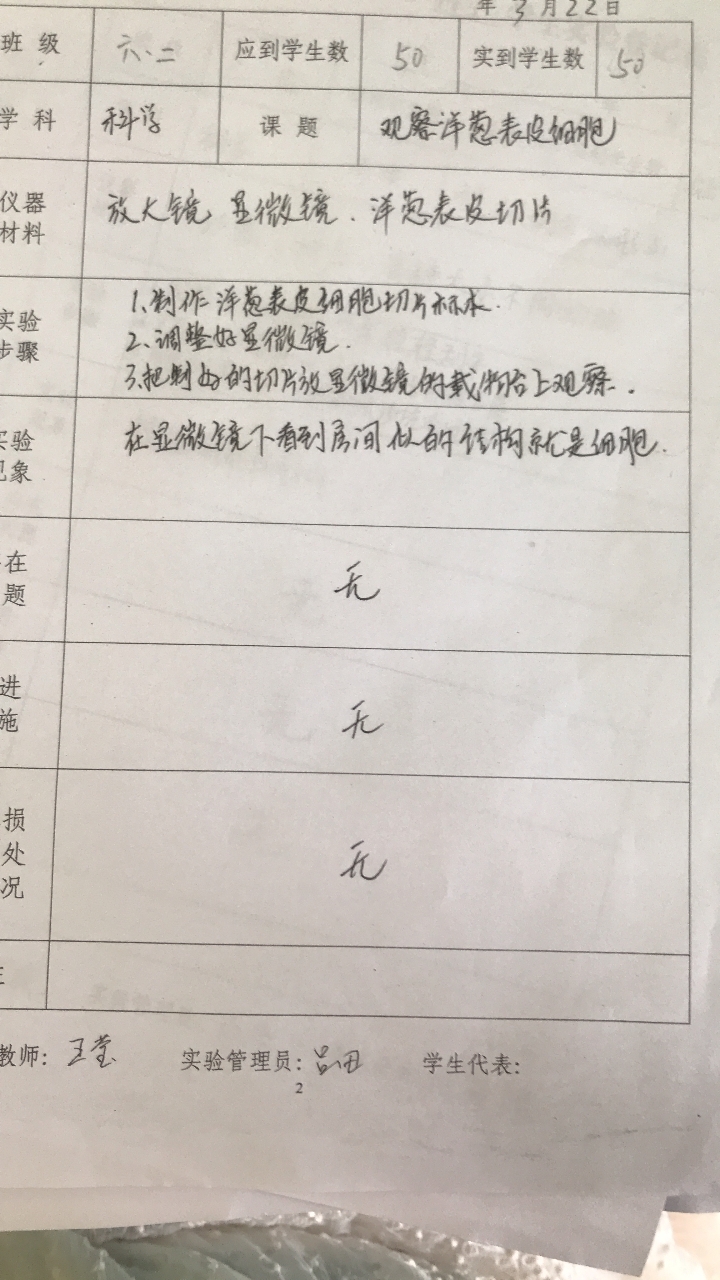 年 3 月 22 日
班 级 六.二 应到学生数 50 实到学生数 50
学 科 科学 课 题 观察洋葱表皮细胞
仪器
材料
放大镜、显微镜、洋葱表皮切片
实验
步骤
1.制作洋葱表皮细胞切片标本.
2.调整好显微镜.
3.把制好的切片放显微镜的载物台上观察.
实验
现象
在显微镜下看到房间似的结构就是细胞.
在
题
无
进
施
无
损
处
况
无
教师: 王莹 实验管理员: 吕田 学生代表:
2